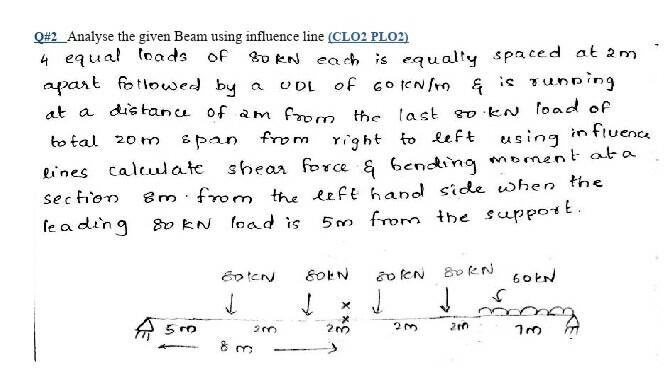 Q#2 Analyse the given Beam using influence line (CLO2 PLO2)
4 equal loads of 80 KN each is equally spaced at 2m
apart followed by a UDL of 60 KN/m & is running
at a distance of 2m from the last 80 KN load of
total 20m span from right to left using influence
lines calculate shear force & bending moment at a
section 8m from the left hand side when the
leading 80 KN load is 5m from the support.
80KN 80KN 80KN 80KN 60KN
5m 2m 2m 2m 2m 7m
8m